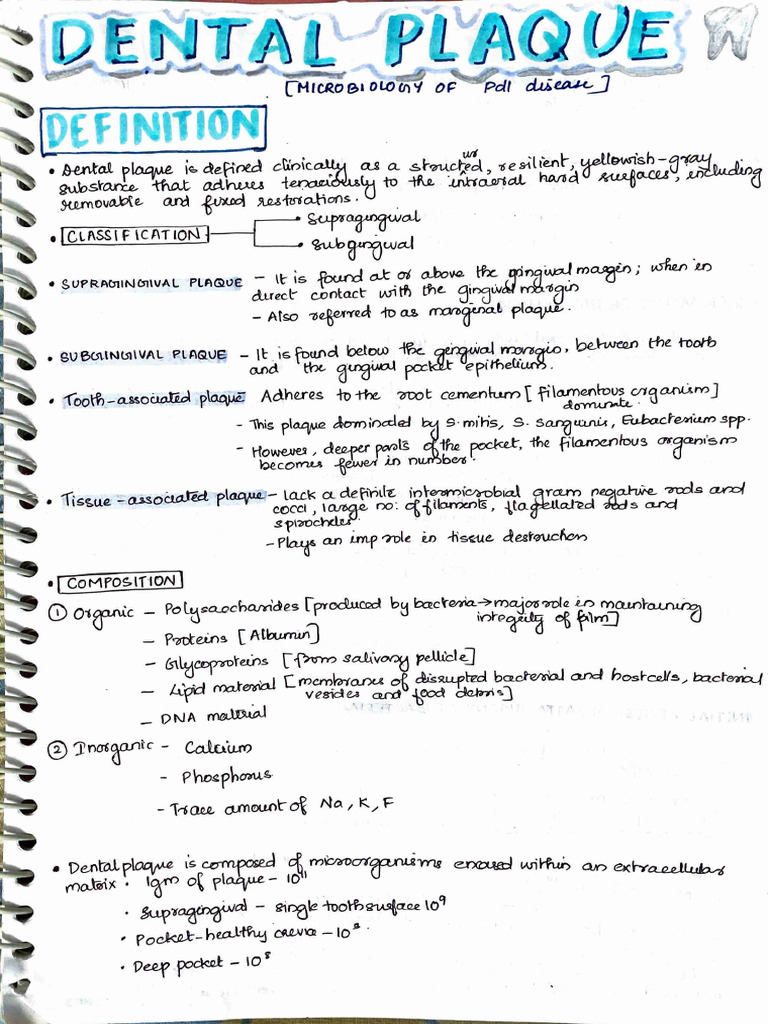 DENTAL PLAQUE
[MICROBIOLOGY OF Pdl disease]
DEFINITION
• Dental plaque is defined clinically as a structured, resilient, yellowish-gray
substance that adheres tenaciously to the intraoral hard surfaces, including
removable and fixed restorations.
• CLASSIFICATION
• Supragingival
• Subgingival
• SUPRAGINGIVAL PLAQUE – It is found at or above the gingival margin; when in
direct contact with the gingival margin
– Also referred to as marginal plaque.
• SUBGINGIVAL PLAQUE – It is found below the gingival margin, between the tooth
and the gingival pocket epithelium.
• Tooth-associated plaque Adheres to the root cementum [filamentous organism]
dominate.
– This plaque dominated by S. mitis, S. sanguinis, Eubacterium spp.
– However, deeper parts of the pocket, the filamentous organism
becomes fewer in number.
• Tissue-associated plaque – lack a definite intermicrobial gram negative rods and
cocci, large no: of filaments, flagellated rods and
spirochetes.
– Plays an imp role in tissue destruction
• COMPOSITION
① Organic – Polysaccharides [produced by bacteria → major role in maintaining
integrity of film]
– Proteins [Albumin]
– Glycoproteins [from salivary pellicle]
– Lipid material [membranes of disrupted bacterial and host cells, bacterial
vesicles and food debris]
– DNA material
② Inorganic – Calcium
– Phosphorus
– Trace amount of Na, K, F
• Dental plaque is composed of microorganisms encased within an extracellular
matrix. 1gm of plaque – 10¹¹
• Supragingival – single tooth surface 10⁹
• Pocket-healthy crevice – 10³.
• Deep pocket – 10⁸